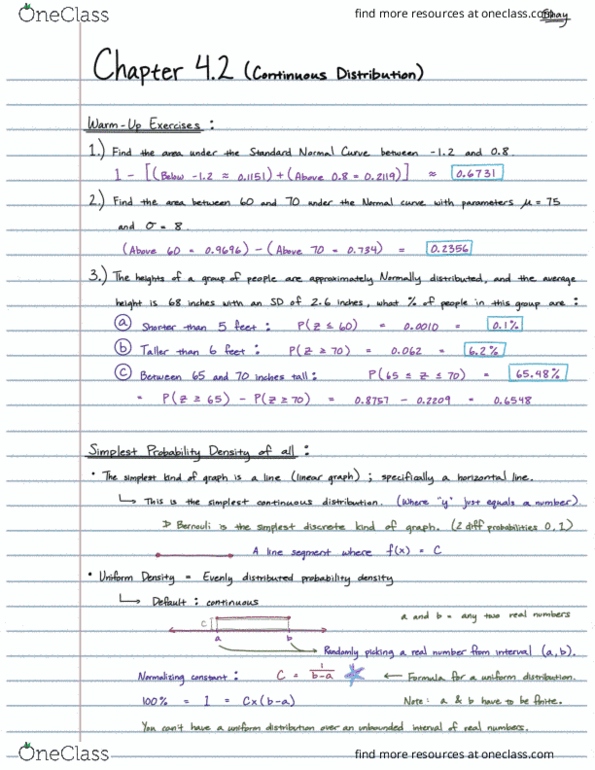 OneClass
find more resources at oneclass.com
Chapter 4.2 (Continuous Distribution)
Warm-Up Exercises :
1.) Find the area under the Standard Normal Curve between -1.2 and 0.8.
1 - [(Below -1.2 ≈ 0.1151) + (Above 0.8 = 0.2119)] ≈ 0.6731
2.) Find the area between 60 and 70 under the Normal curve with parameters μ = 75
and σ = 8.
(Above 60 = 0.9696) - (Above 70 = 0.734) = 0.2356
3.) The heights of a group of people are approximately Normally distributed, and the average
height is 68 inches with an SD of 2.6 inches, what % of people in this group are :
(a) Shorter than 5 feet : P(Z ≤ 60) = 0.0010 = 0.1%
(b) Taller than 6 feet : P(Z ≥ 70) = 0.062 = 6.2%
(c) Between 65 and 70 inches tall : P(65 ≤ Z ≤ 70) = 65.48%
= P(Z ≥ 65) - P(Z ≥ 70) = 0.8757 - 0.2209 = 0.6548
Simplest Probability Density of all :
• The simplest kind of graph is a line (linear graph) ; specifically a horizontal line.
↳ This is the simplest continuous distribution. (Where "y" just equals a number).
▷ Bernouli is the simplest discrete kind of graph. (2 diff probabilities 0, 1)
A line segment where f(x) = C
• Uniform Density = Evenly distributed probability density
↳ Default : continuous
C
a and b = any two real numbers
a b
Randomly picking a real number from interval (a, b).
Normalizing constant : C = 1/(b-a) ← Formula for a uniform distribution.
100% = 1 = C×(b-a) Note : a & b have to be finite.
You can't have a uniform distribution over an unbounded interval of real numbers.
OneClass
find more resources at oneclass.com